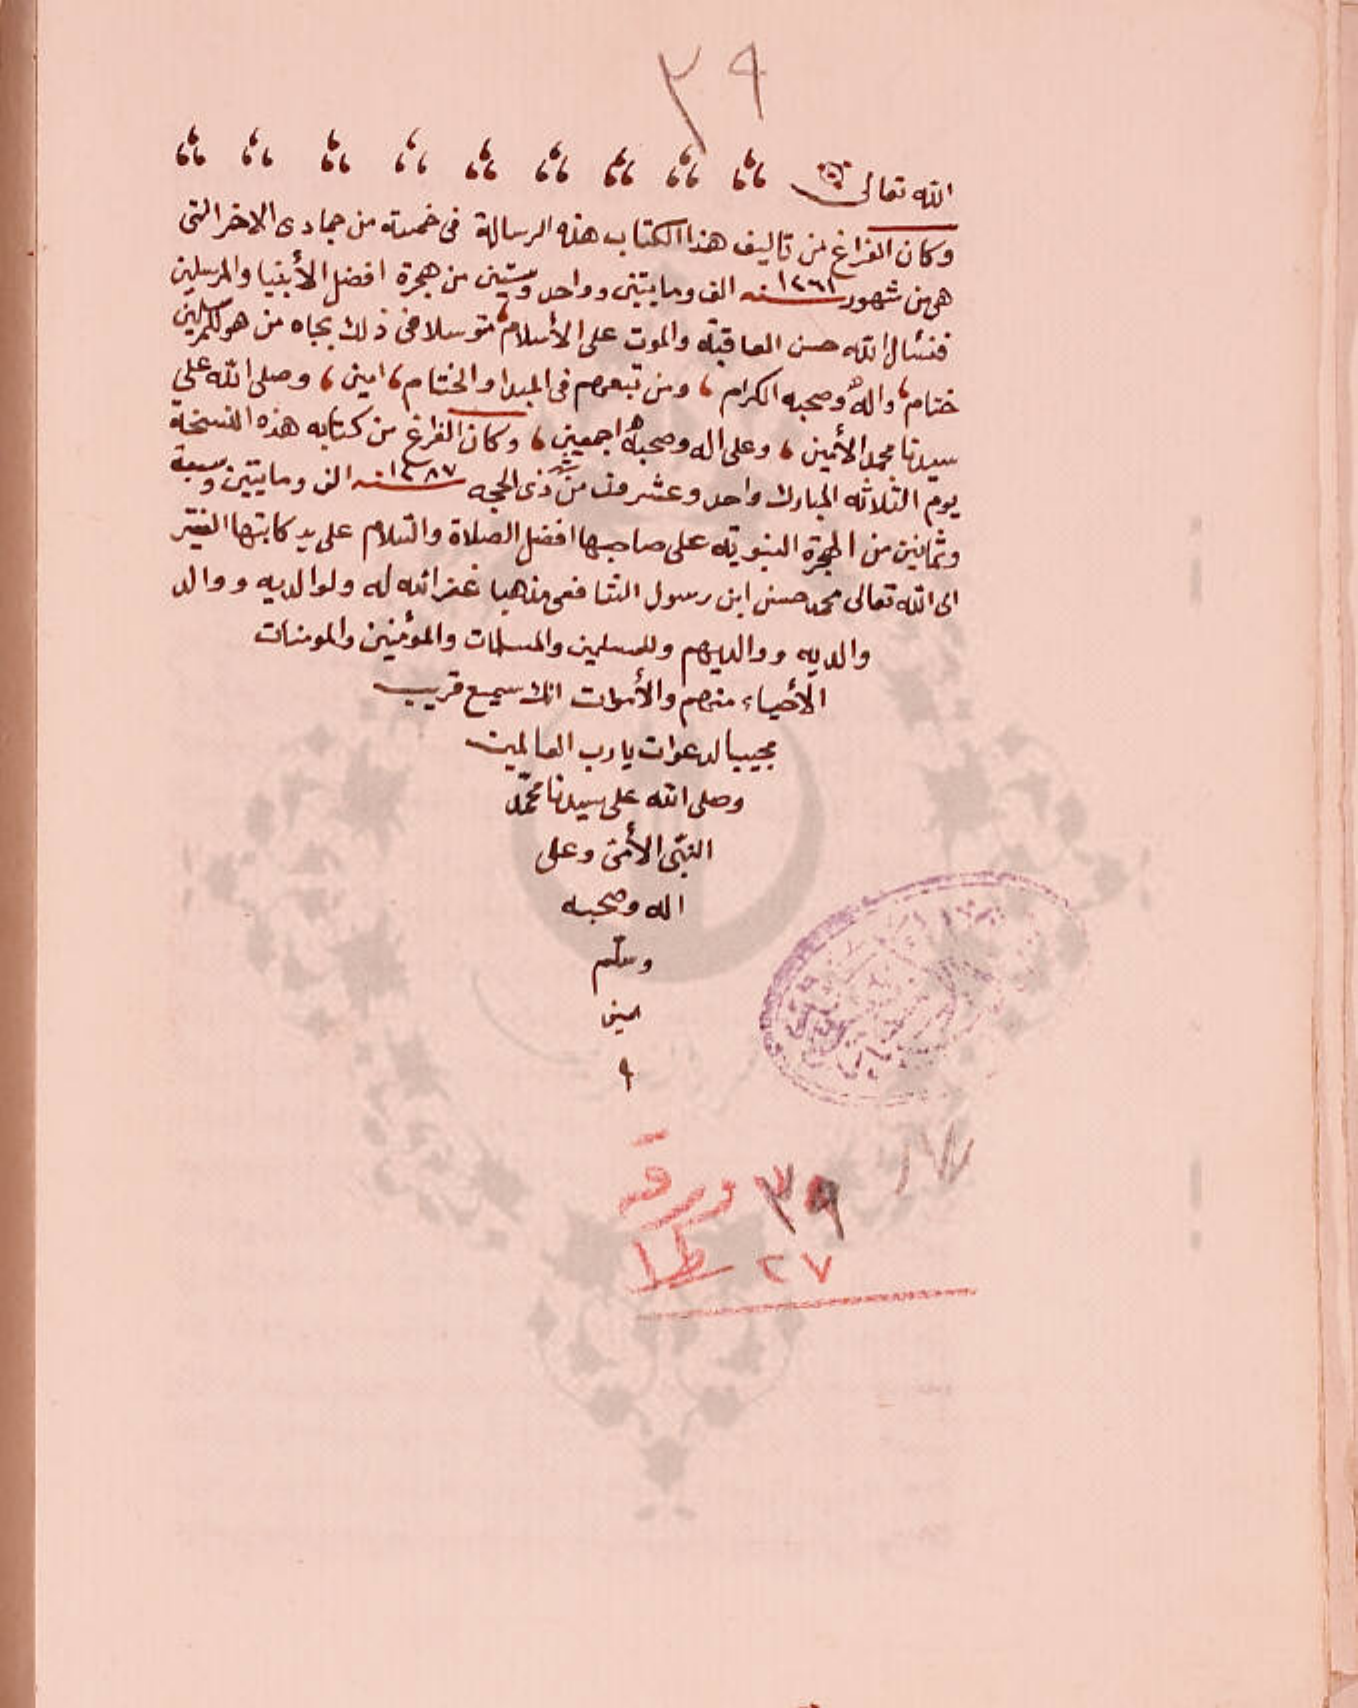 ٣٩
الله تعالى
وكان الفراغ من تاليف هذا الكتاب هذه الرسالة فى خمسة من جمادى الاخر التى
هى من شهور سنه ١٢٦١ الف ومايتين وواحد وستين من هجرة افضل الأنبيا والمرسلين
فنسأل الله حسن العاقبة والموت على الأسلام متوسلا فى ذلك بجاه من هو للمرسلين
ختام واله وصحبه الكرام ، ومن تبعهم فى المبدا والختام ، امين ، وصلى الله على
سيدنا محمد الأمين ، وعلى اله وصحبه اجمعين ، وكان الفراغ من كتابه هذه النسخة
يوم الثلاثه المبارك واحد وعشرون من شهر ذى الحجه سنه ١٢٨٧ الف ومايتين وسبعة
وثمانين من الهجرة النبوية على صاحبها افضل الصلاة والسلام على يد كاتبها الفقير
الى الله تعالى محمد حسن ابن رسول الشافعى مذهبا غفر الله له ولوالديه ووالد
والديه ووالديهم وللمسلمين والمسلمات والمؤمنين والمومنات
الأحياء منهم والأموات انك سميع قريب
مجيب الدعوات يا رب العالمين
وصلى الله على سيدنا محمد
النبى الأمى وعلى
اله وصحبه
وسلم
امين
٩
٣٩ ورقه
٢٧ سطرا